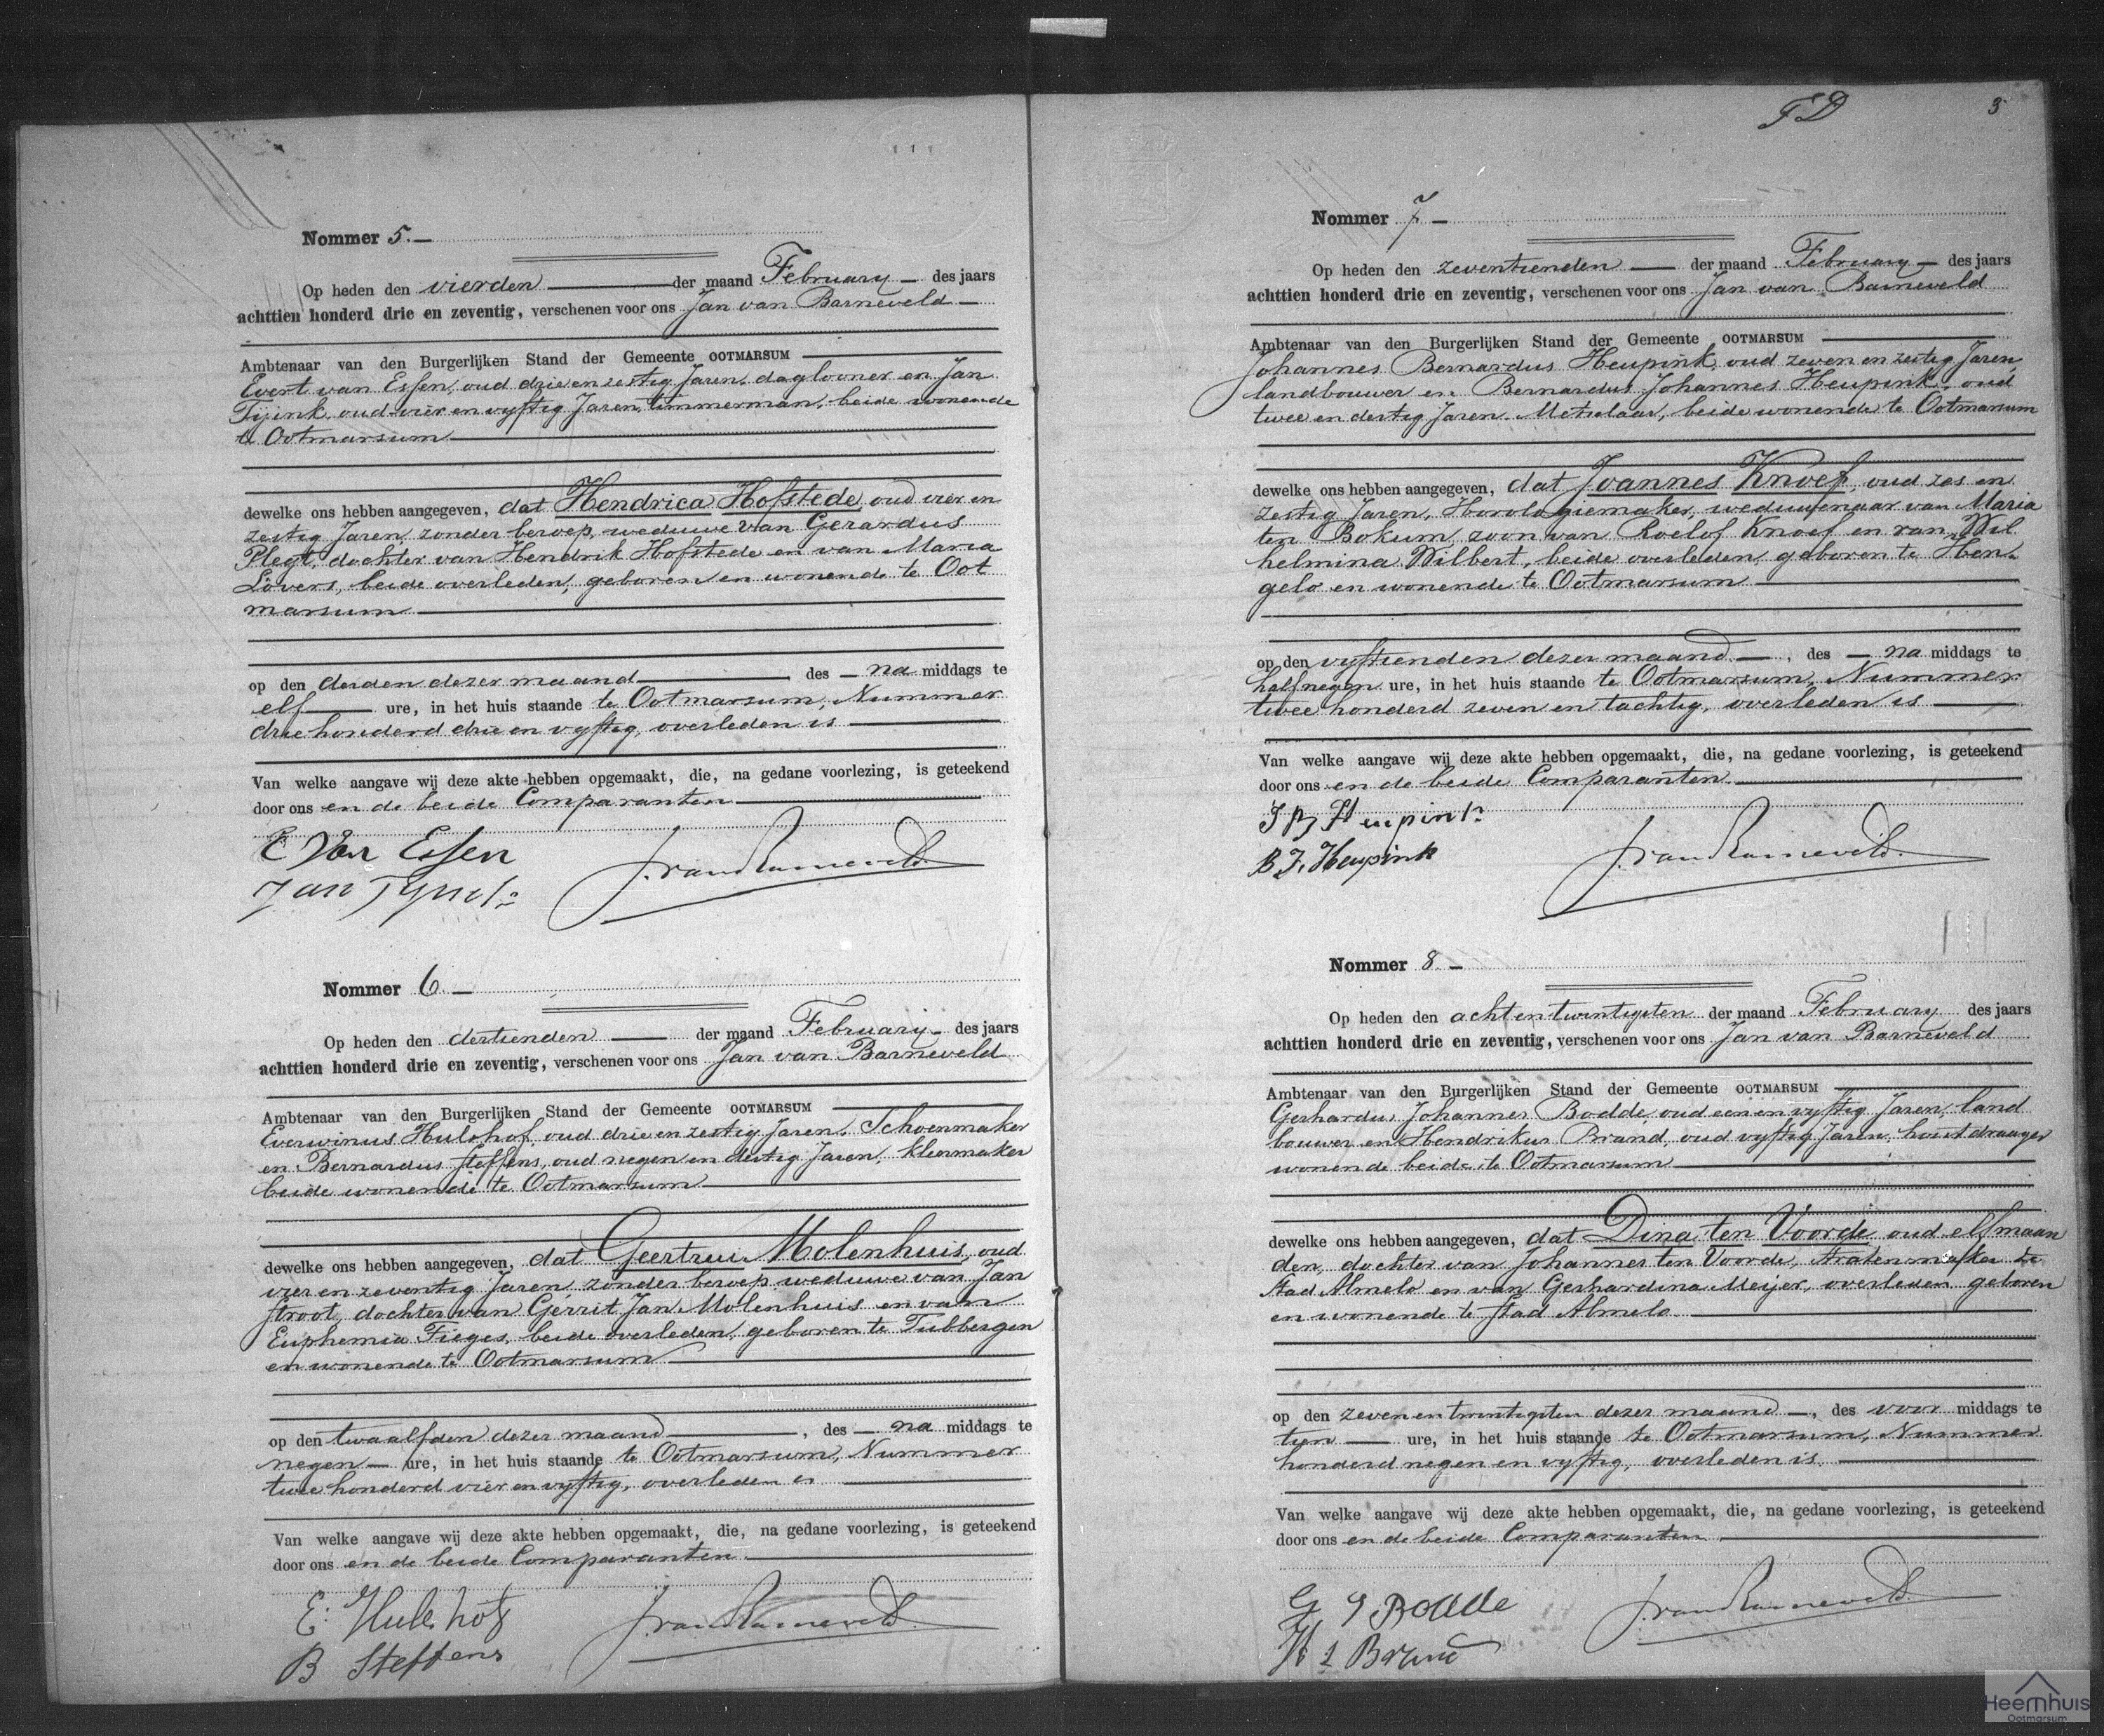 Nommer 5.
Op heden den vierden der maand February des jaars
achttien honderd drie en zeventig, verschenen voor ons Jan van Barneveld
Ambtenaar van den Burgerlijken Stand der Gemeente OOTMARSUM
Evert van Essen, oud drie en zestig Jaren, daglooner en Jan
Tijink, oud vier en vyftig Jaren, timmerman, beide wonende
te Ootmarsum
dewelke ons hebben aangegeven, dat Hendrica Hofstede, oud vier en
zestig Jaren, zonder beroep, weduwe van Gerardus
Plegt, dochter van Hendrik Hofstede en van Maria
Lövers, beide overleden, geboren en wonende te Oot
marsum
op den derden dezer maand, des na middags te
elf ure, in het huis staande te Ootmarsum, Nummer
drie honderd drie en vyftig, overleden is
Van welke aangave wij deze akte hebben opgemaakt, die, na gedane voorlezing, is geteekend
door ons en de beide Comparanten
E Van Essen
Jan Tynk
J. van Barneveld.
Nommer 6.
Op heden den dertienden der maand February des jaars
achttien honderd drie en zeventig, verschenen voor ons Jan van Barneveld
Ambtenaar van den Burgerlijken Stand der Gemeente OOTMARSUM
Everwinus Hulshof, oud drie en zestig Jaren, Schoenmaker
en Bernardus Steffens, oud negen en dertig Jaren, kleermaker
beide wonende te Ootmarsum
dewelke ons hebben aangegeven, dat Geertrui Molenhuis, oud
vier en zeventig Jaren, zonder beroep, weduwe van Jan
Stroot, dochter van Gerrit Jan Molenhuis en van
Euphemia Fieges, beide overleden, geboren te Tubbergen
en wonende te Ootmarsum
op den twaalfden dezer maand, des na middags te
negen ure, in het huis staande te Ootmarsum, Nummer
twee honderd vier en vyftig, overleden is
Van welke aangave wij deze akte hebben opgemaakt, die, na gedane voorlezing, is geteekend
door ons en de beide Comparanten
E: Hulshof
B Steffens
J. van Barneveld.
F D
3
Nommer 7
Op heden den zeventienden der maand February des jaars
achttien honderd drie en zeventig, verschenen voor ons Jan van Barneveld
Ambtenaar van den Burgerlijken Stand der Gemeente OOTMARSUM
Johannes Bernardus Heupink, oud zeven en zestig Jaren,
landbouwer en Bernardus Johannes Heupink, oud
twee en dertig Jaren, Metselaar, beide wonende te Ootmarsum
dewelke ons hebben aangegeven, dat Joannes Knoef, oud zes en
zestig Jaren, Horologiemaker, weduwenaar van Maria
ten Bokum, zoon van Roelof Knoef en van Wil
helmina Wilbert, beide overleden, geboren te Hen
gelo en wonende te Ootmarsum
op den vyftienden dezer maand, des na middags te
half negen ure, in het huis staande te Ootmarsum, Nummer
twee honderd zeven en tachtig, overleden is
Van welke aangave wij deze akte hebben opgemaakt, die, na gedane voorlezing, is geteekend
door ons en de beide Comparanten
J B Heupink
B J. Heupink
J. van Barneveld.
Nommer 8.
Op heden den acht en twintigsten der maand February des jaars
achttien honderd drie en zeventig, verschenen voor ons Jan van Barneveld
Ambtenaar van den Burgerlijken Stand der Gemeente OOTMARSUM
Gerhardus Johannes Bodde, oud een en vyftig Jaren, land
bouwer en Hendrikus Brand, oud vyftig Jaren, houtdraager
wonende beide te Ootmarsum
dewelke ons hebben aangegeven, dat Dina ten Voorde oud elf maan
den, dochter van Johannes ten Voorde, te
Stad Almelo en van Gerhardina Meijer, overleden geboren
en wonende te Stad Almelo
op den zeven en twintigsten dezer maand, des voor middags te
tien ure, in het huis staande te Ootmarsum, Nummer
honderd negen en vyftig, overleden is
Van welke aangave wij deze akte hebben opgemaakt, die, na gedane voorlezing, is geteekend
door ons en de beide Comparanten
G J Bodde
H Brand
J. van Barneveld.
Heemhuis
Ootmarsum